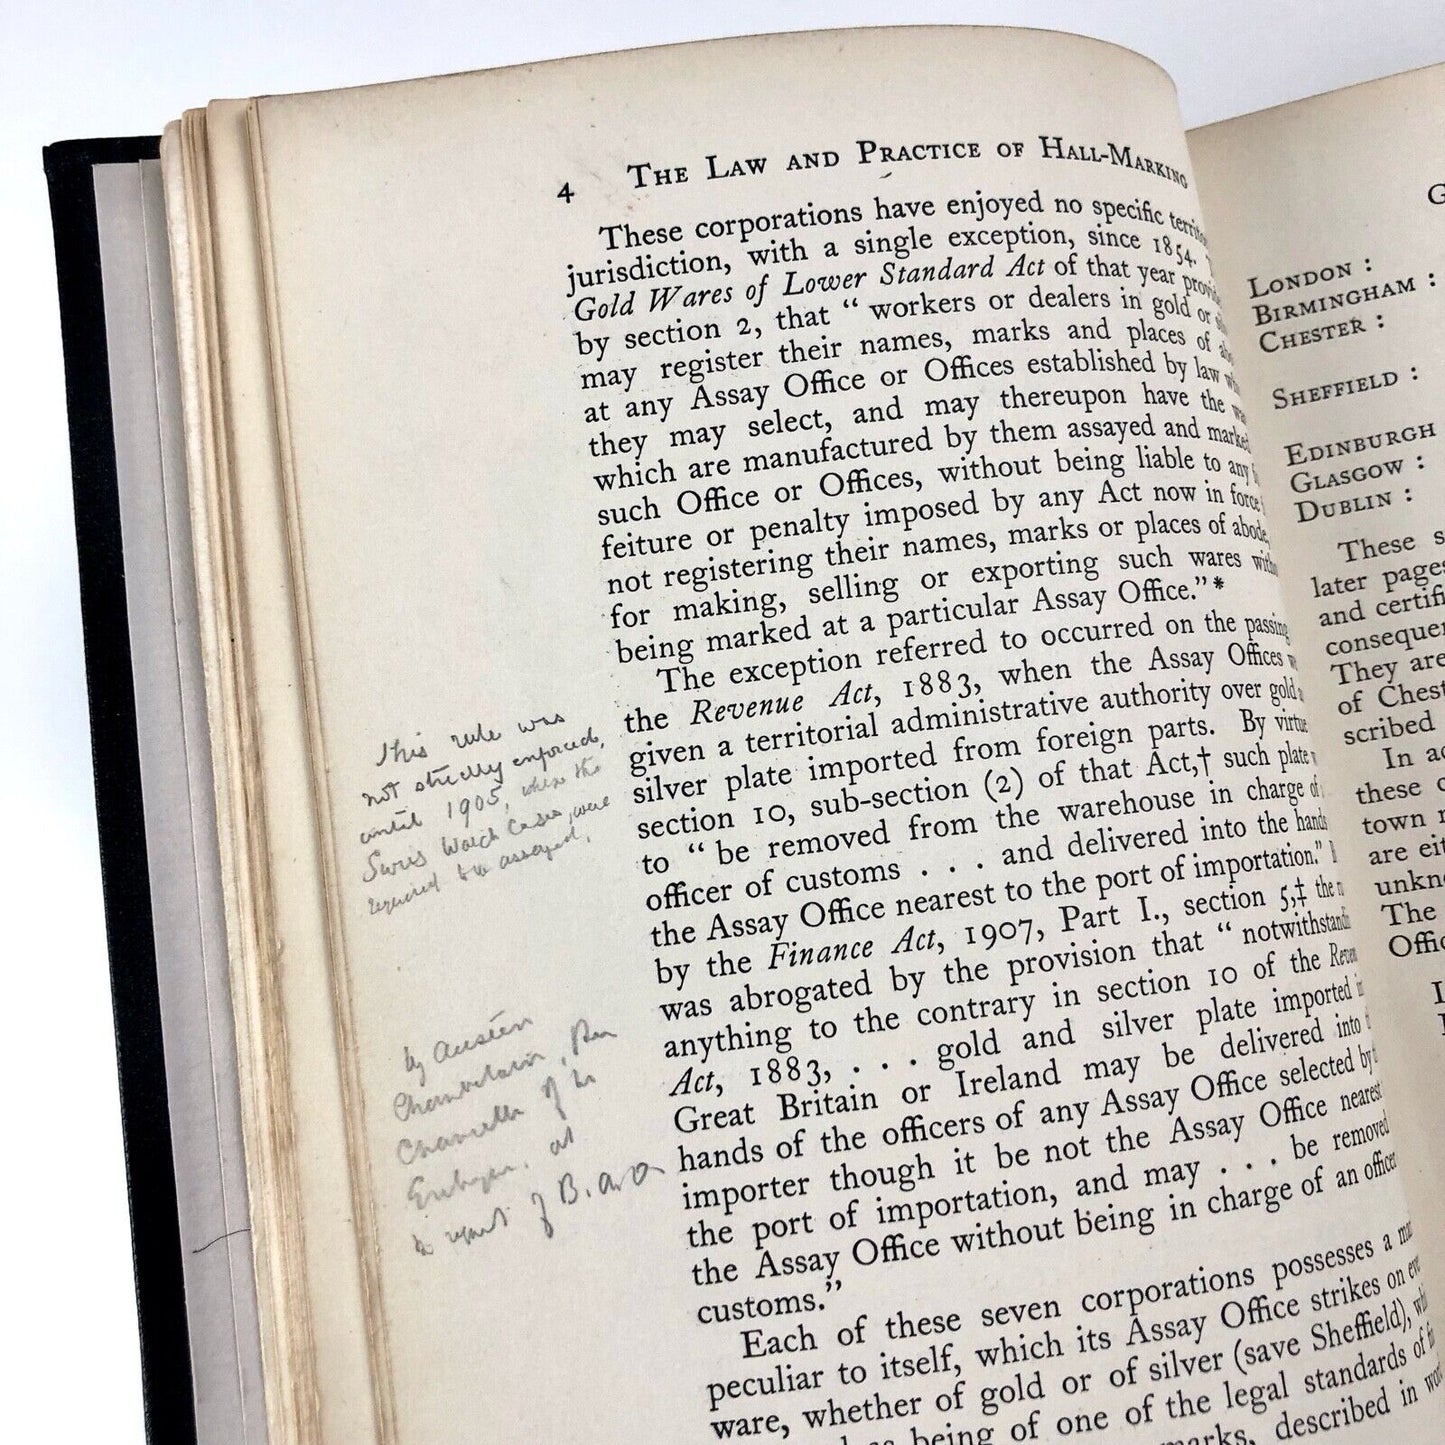 4 THE LAW AND PRACTICE OF HALL-MARKING
These corporations have enjoyed no specific
jurisdiction, with a single exception, since 1854.
Gold Wares of Lower Standard Act of that year
by section 2, that “ workers or dealers in gold or
may register their names, marks and places of
at any Assay Office or Offices established by law
they may select, and may thereupon have the
which are manufactured by them assayed and marked
such Office or Offices, without being liable to any
feiture or penalty imposed by any Act now in force
not registering their names, marks or places of abode,
for making, selling or exporting such wares
being marked at a particular Assay Office.”*
The exception referred to occurred on the passing
the Revenue Act, 1883, when the Assay Offices
given a territorial administrative authority over gold
silver plate imported from foreign parts. By virtue
section 10, sub-section (2) of that Act,† such plate
to “ be removed from the warehouse in charge of
officer of customs . . . and delivered into the hands
the Assay Office nearest to the port of importation.”
by the Finance Act, 1907, Part I., section 5,‡ the
was abrogated by the provision that “ notwithstanding
anything to the contrary in section 10 of the
Act, 1883, . . . gold and silver plate imported
Great Britain or Ireland may be delivered into
hands of the officers of any Assay Office selected by
importer though it be not the Assay Office nearest
the port of importation, and may . . . be removed
the Assay Office without being in charge of an officer
customs.”
Each of these seven corporations possesses a
peculiar to itself, which its Assay Office strikes on
ware, whether of gold or of silver (save Sheffield),
as being of one of the legal standards of
marks, described in
this rule was
not strictly enforced,
until 1905, when the
Swiss Watch Cases, were
required to be assayed,
by Austen
Chamberlain, then
Chancellor of
at
request of B.
LONDON :
BIRMINGHAM :
CHESTER :
SHEFFIELD :
EDINBURGH
GLASGOW :
DUBLIN :
These
later pages
and
They are
of
scribed
In
these
town
are
The